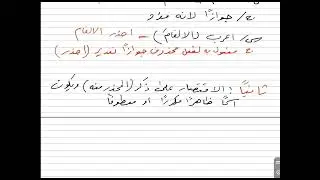 ع/ جوازًا لأنه مفرد
س/ اعرب (الالغام) = احذر الالغام
ع مفعول به لفعل محذوف جوازًا تقديره (احذر)
ثانيًا : الاقتصار على ذكر (المحذر منه) ويكون
اسمًا ظاهرًا مكررًا او معطوفًا